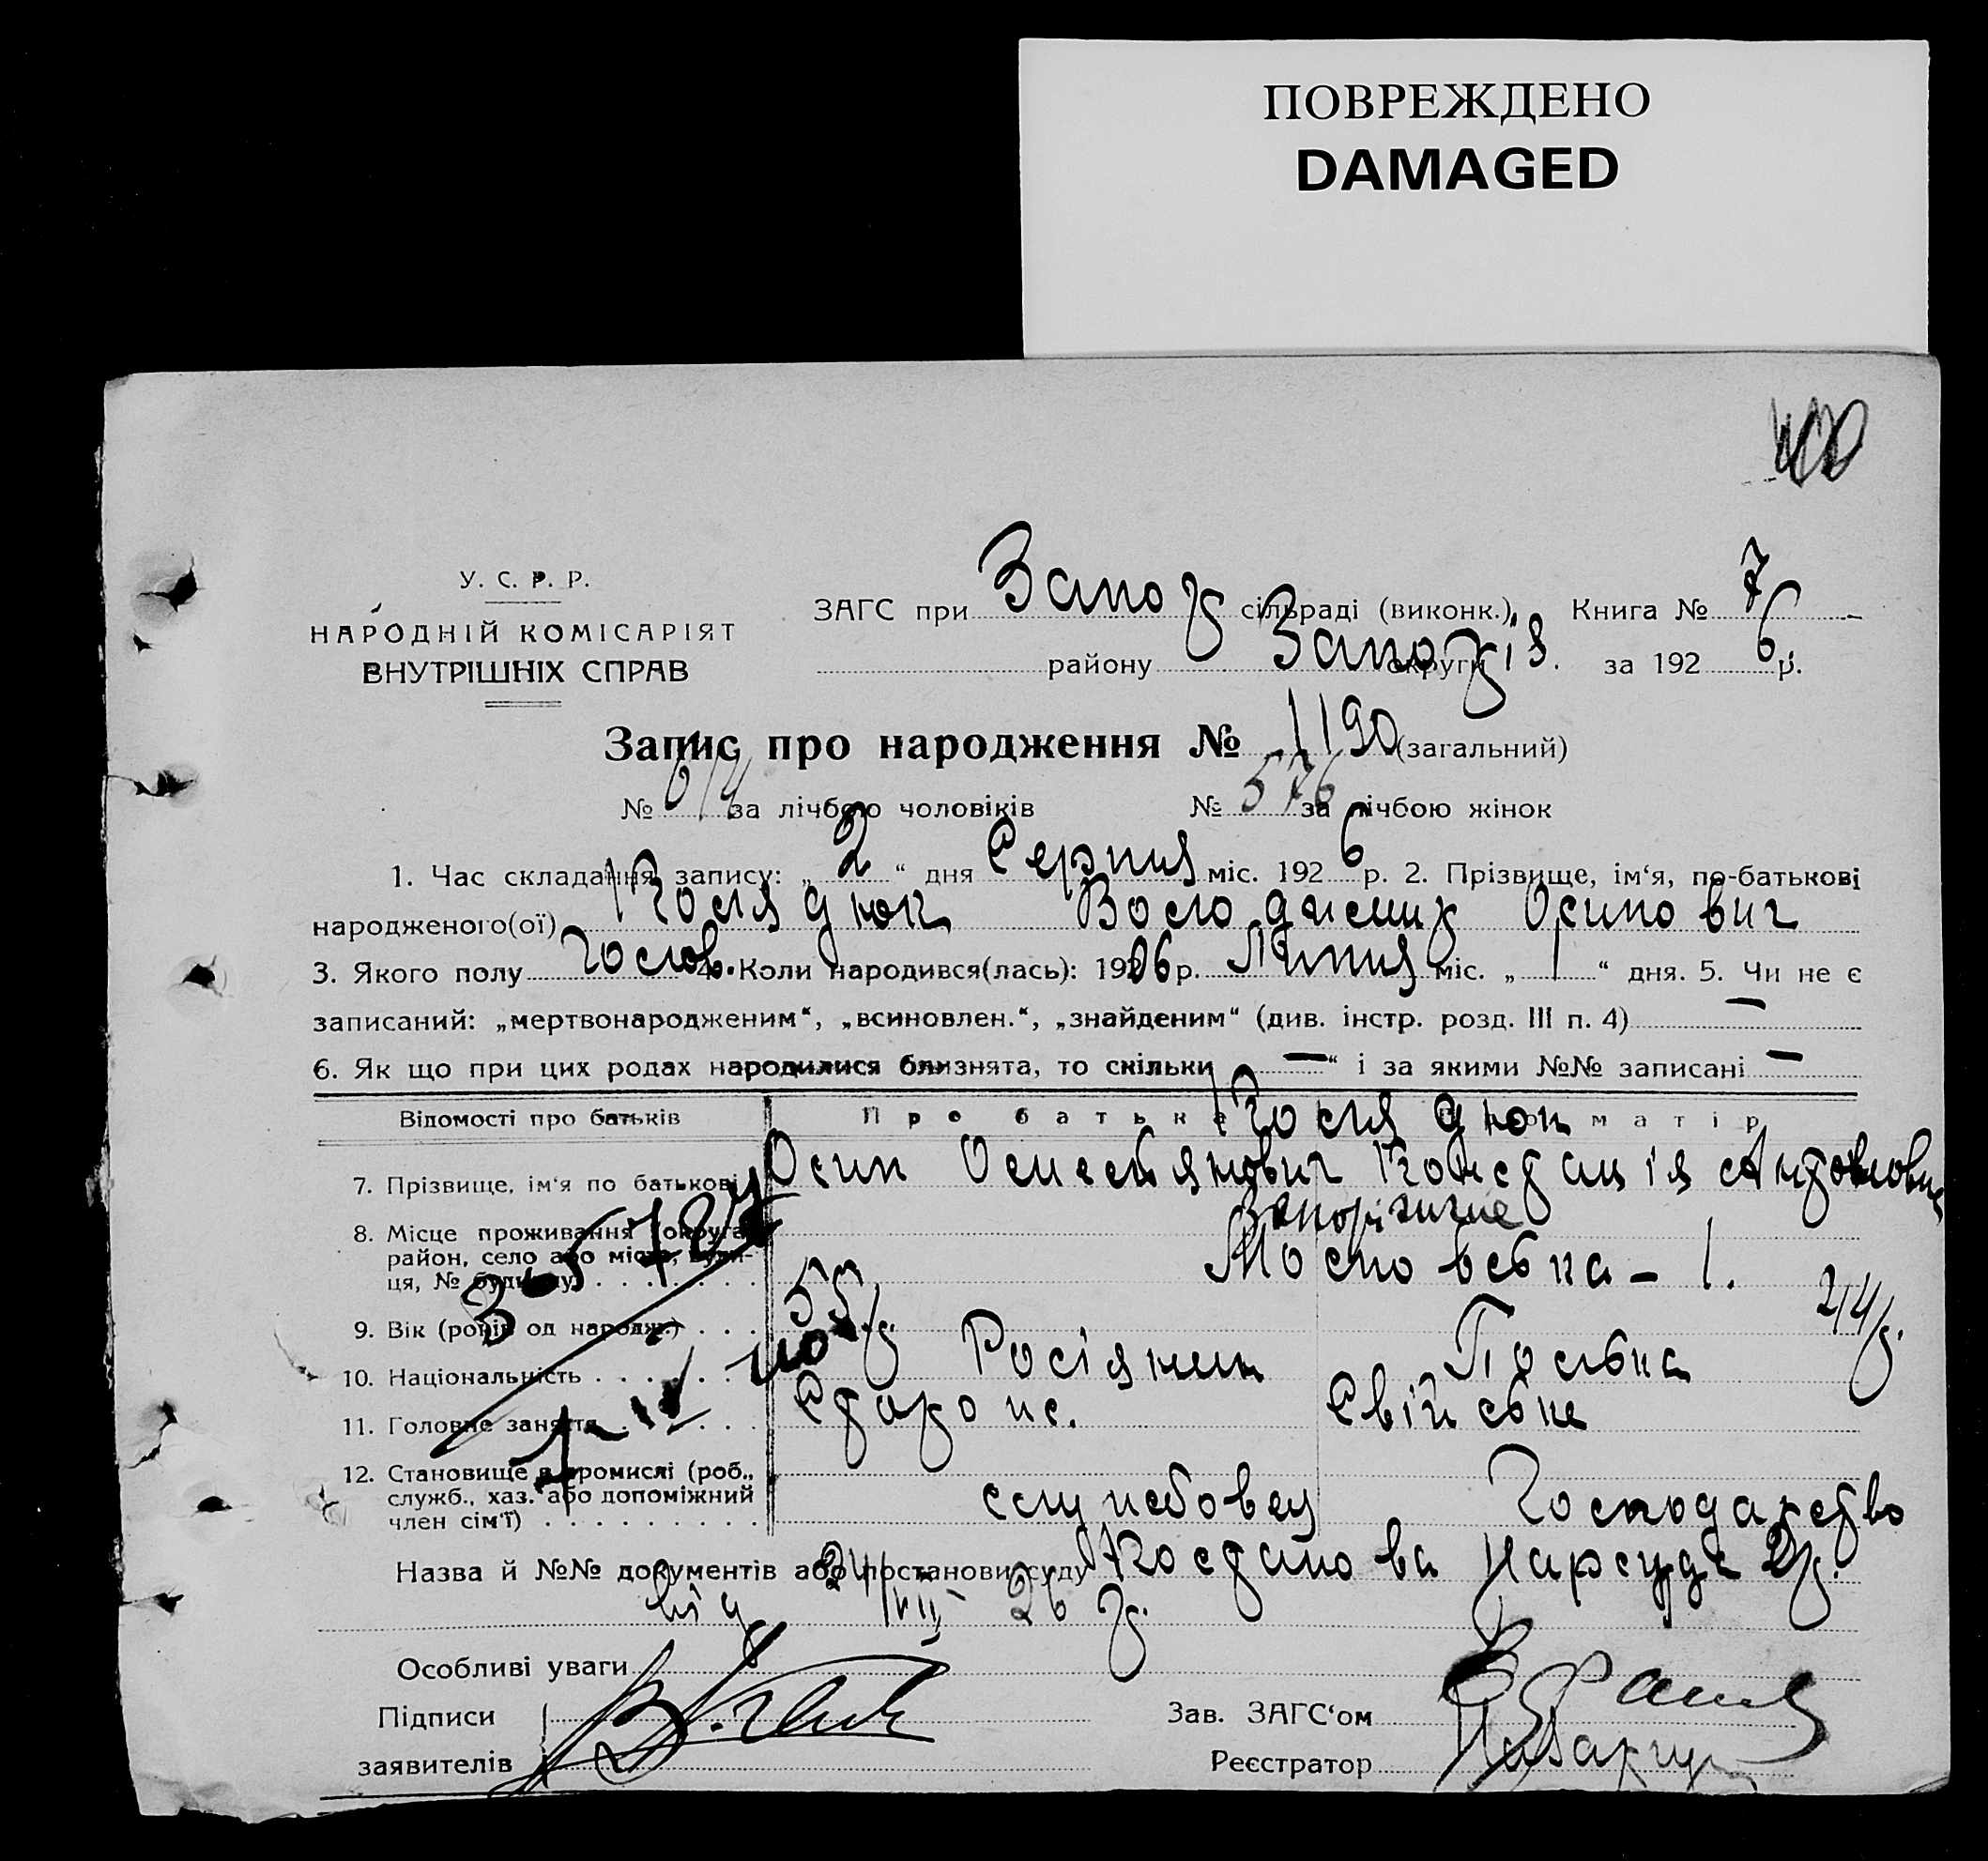 ПОВРЕЖДЕНО
DAMAGED
400
У. С. Р. Р.
НАРОДНІЙ КОМІСАРІЯТ
ВНУТРІШНІХ СПРАВ
ЗАГС при Запор сільраді (виконк.) Книга № 7
району Запоріз. округи за 192 6 р.
Запис про народження № 1190 (загальний)
№ 614 за лічбою чоловіків № 576 за лічбою жінок
1. Час складання запису: „ 2 “ дня Серпня міс. 192 6 р. 2. Прізвище, ім‘я, по-батькові
народженого(ої) Володимир Осипович
3. Якого полу Чолов. 4. Коли народився(лась): 1906 р. Липня міс. „ 1 “ дня. 5. Чи не є
записаний: „мертвонародженим“, „всиновлен.“, „знайденим“ (див. інстр. розд. III п. 4) —
6. Як що при цих родах народилися близнята, то скільки — “ і за якими №№ записані —
Відомості про батьків Про батька матір
7. Прізвище, ім‘я по батькові Осип Констанція Антоновна
8. Місце проживання (округа, район, село або місто, вули-
ця, № будинку) Запоріжжє
Московська - 1.
9. Вік (років од народж.) 55 р. 24 р.
10. Національність Росіянин Полька
11. Головне заняття Сторож. Свійське
12. Становище в промислі (роб.,
служб., хаз. або допоміжний
член сім‘ї) службовец Господарство
Назва й №№ документів або постанови суду Постанова Нарсуда 2 р.
від 24/VII - 26 р.
Особливі уваги
Підписи
заявителів
Зав. ЗАГС‘ом
Реєстратор